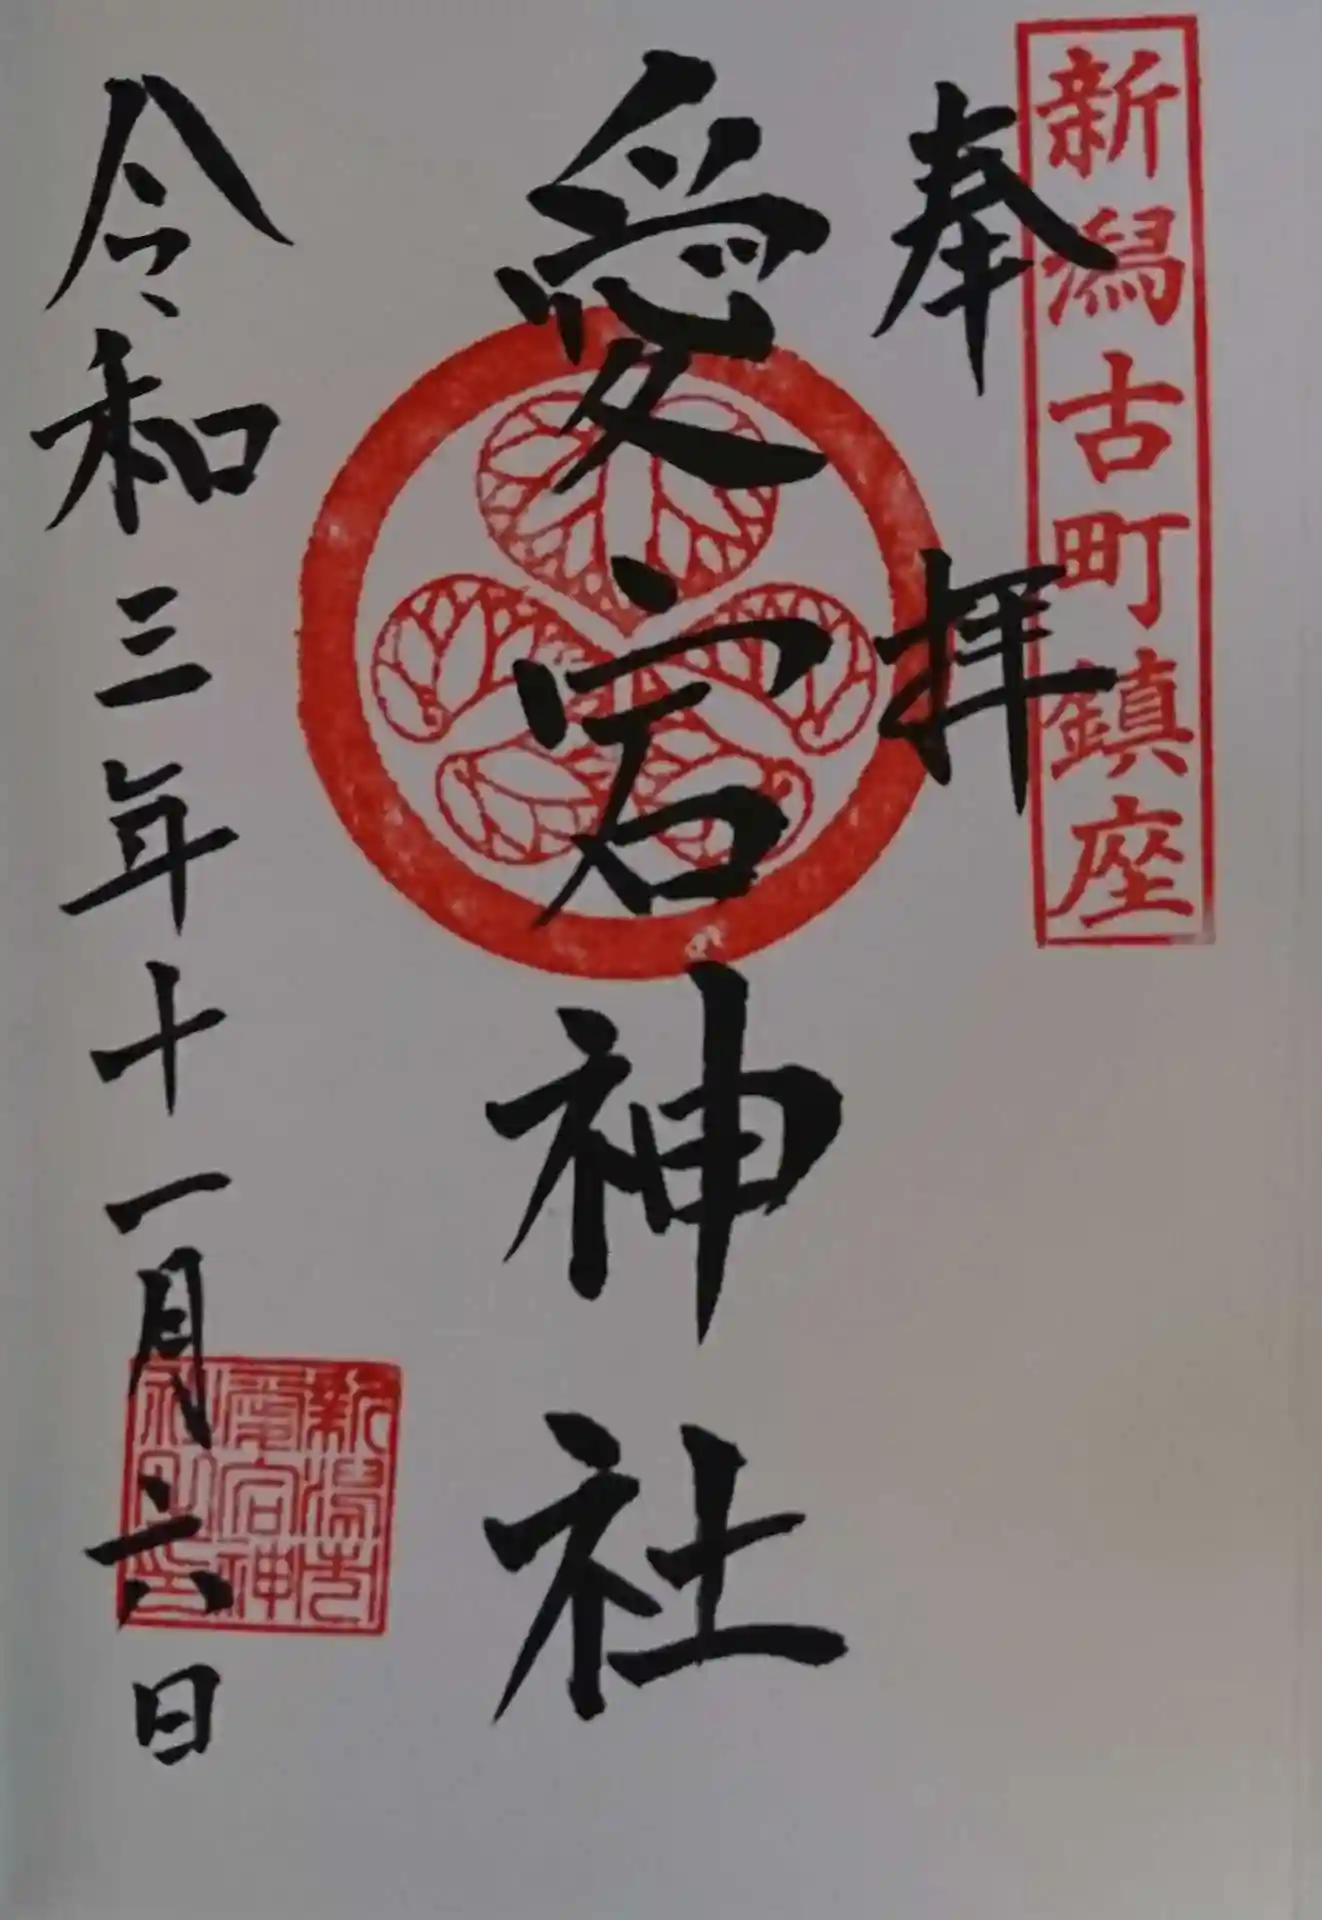 新潟古町鎮座
奉拝
愛宕神社
令和三年十一月六日
新潟市
愛宕神
社之印